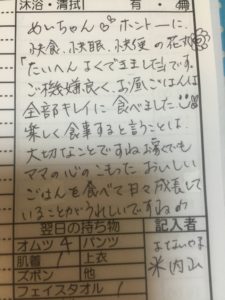 沐浴・清拭 有・無
めいちゃん ホントーに、
快食、快眠、快便の花丸
「たいへんよくできました」です。
ご機嫌良く、お昼ごはんは
全部キレイに食べました
楽しく食事すると言うことは
大切なことですねお家でも
ママの心のこもったおいしい
ごはんを食べて日々成長して
いることがうれしいですね
翌日の持ち物 記入者
オムツ 4 パンツ
肌着 1 上衣
ズボン 他
米内山
フェイスタオル 1